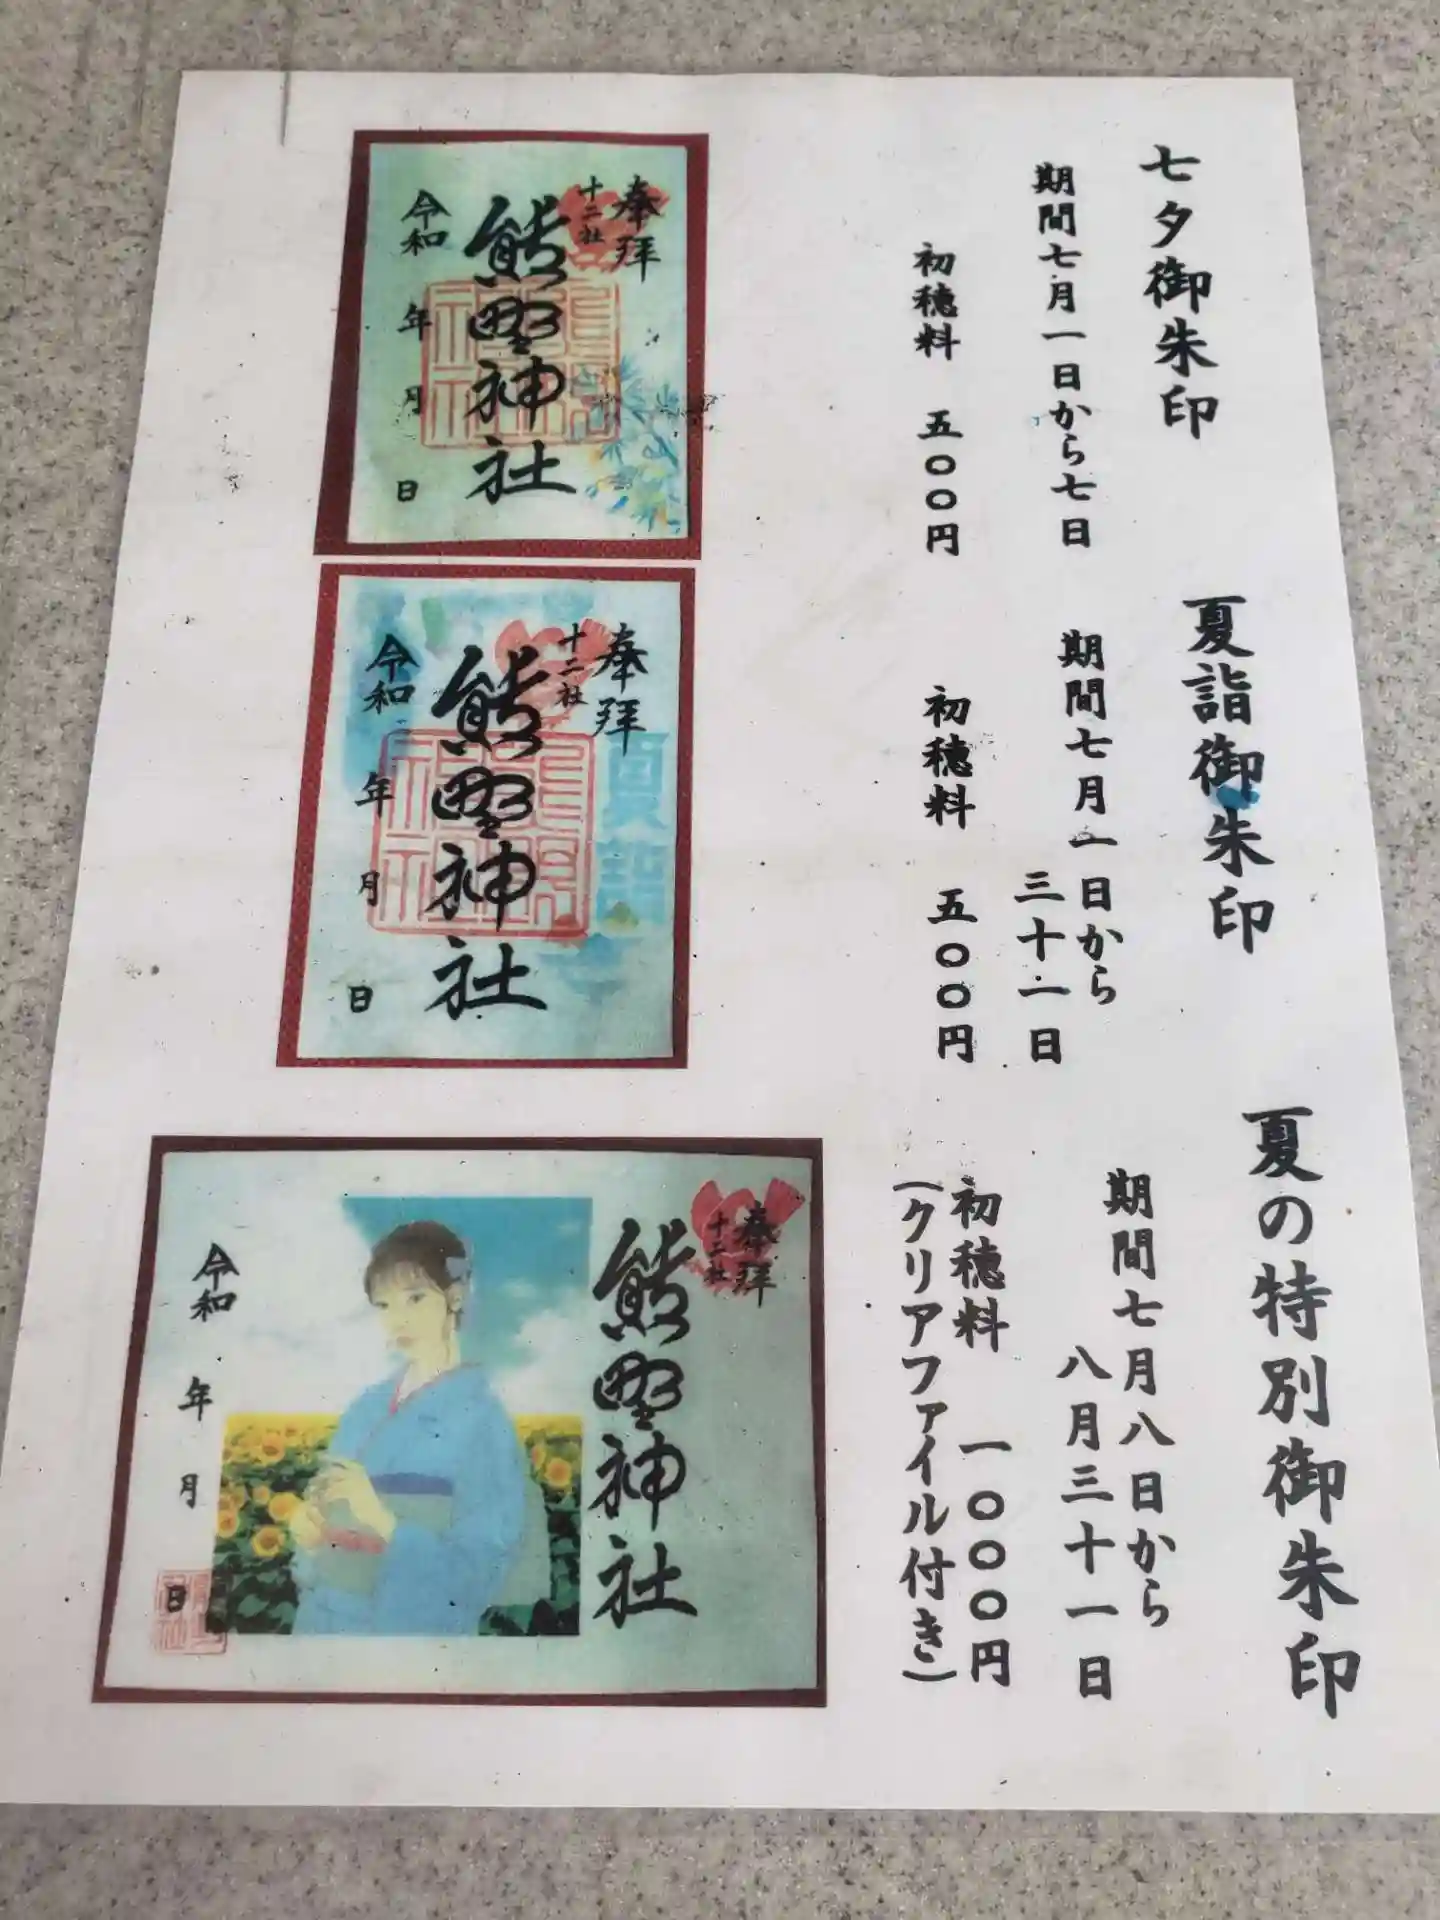 七夕御朱印
期間七月一日から七日
初穂料　五〇〇円
奉拝
十二社
熊野神社
令和　年　月　日
夏詣御朱印
期間七月一日から
三十一日
初穂料　五〇〇円
奉拝
夏詣
十二社
熊野神社
令和　年　月　日
夏の特別御朱印
期間七月八日から
八月三十一日
初穂料　一〇〇〇円
(クリアファイル付き)
奉拝
十二社
熊野神社
令和　年　月　日